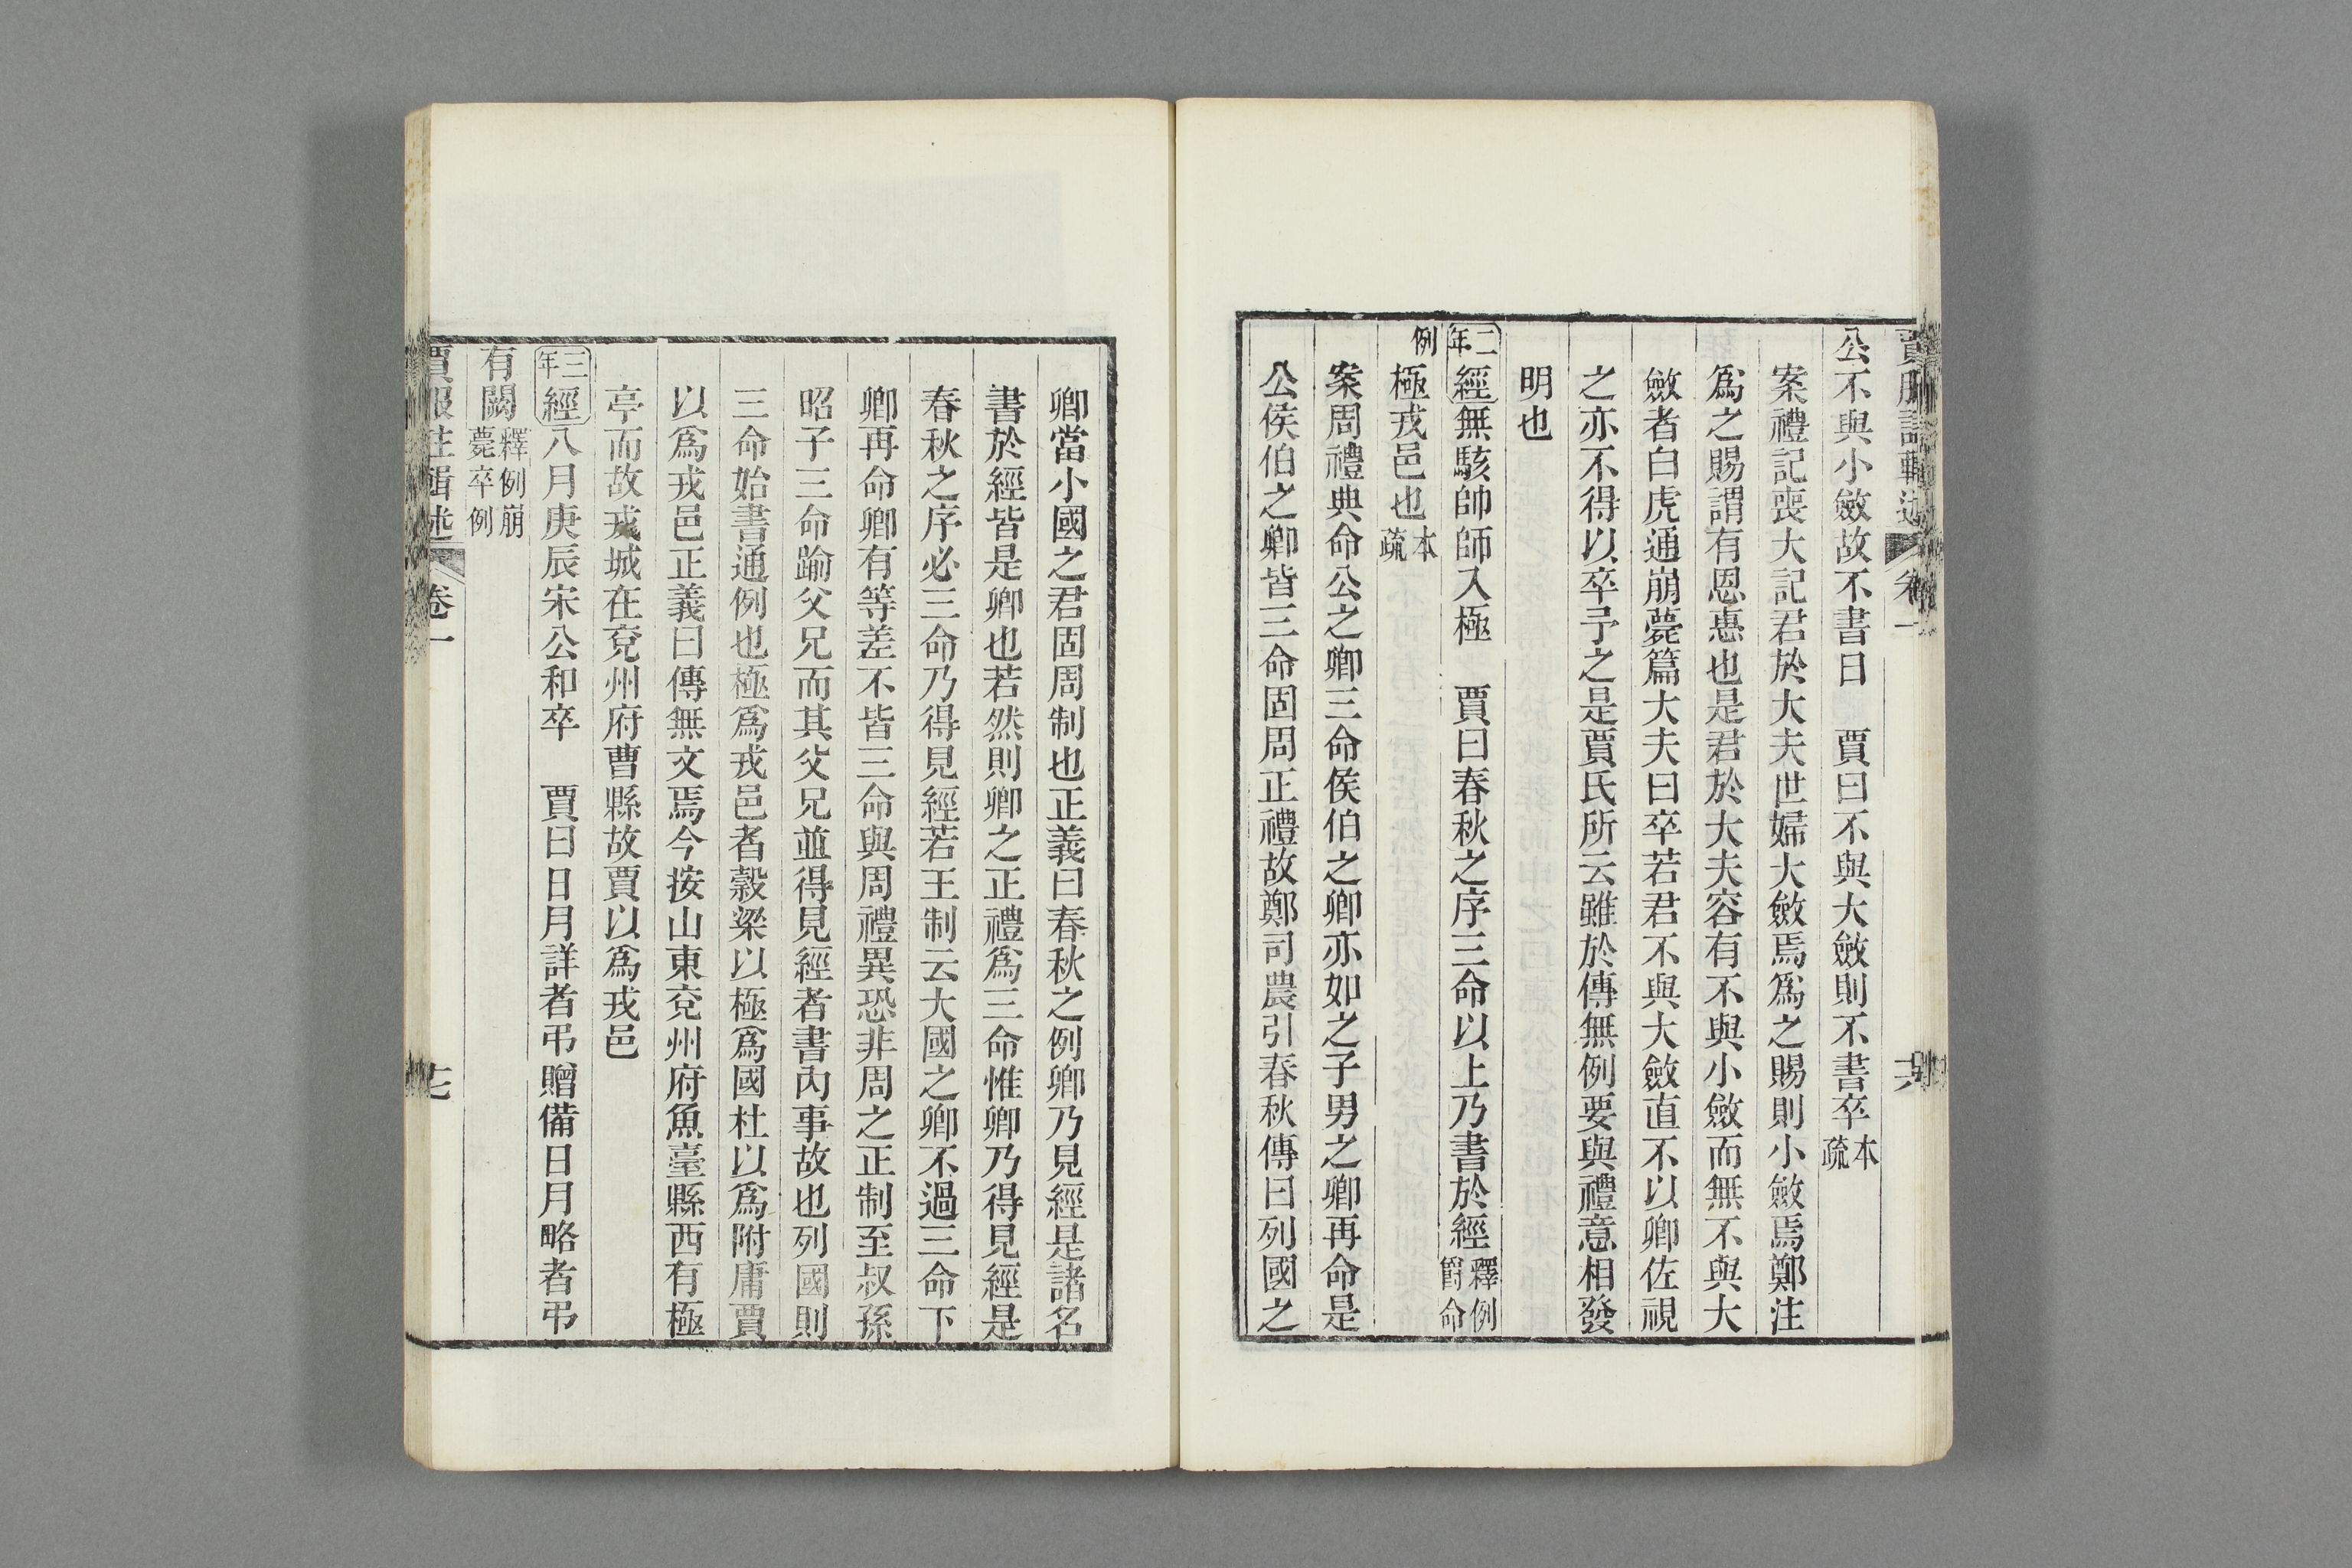 賈服注輯述 卷一 十六
公不與小斂故不書日　賈曰不與大斂則不書卒本疏
案禮記喪大記君於大夫世婦大斂焉爲之賜則小斂焉鄭注
爲之賜謂有恩惠也是君於大夫容有不與小斂而無不與大
斂者白虎通崩薨篇大夫曰卒若君不與大斂直不以卿佐視
之亦不得以卒予之是賈氏所云雖於傳無例要與禮意相發
明也
二年經無駭帥師入極　賈曰春秋之序三命以上乃書於經釋例爵命
例
極戎邑也本疏
案周禮典命公之卿三命侯伯之卿亦如之子男之卿再命是
公侯伯之卿皆三命固周正禮故鄭司農引春秋傳曰列國之
卿當小國之君固周制也正義曰春秋之例卿乃見經是諸名
書於經皆是卿也若然則卿之正禮爲三命惟卿乃得見經是
春秋之序必三命乃得見經若王制云大國之卿不過三命下
卿再命卿有等差不皆三命與周禮異恐非周之正制至叔孫
昭子三命踰父兄而其父兄並得見經者書內事故也列國則
三命始書通例也極爲戎邑者穀梁以極爲國杜以爲附庸賈
以爲戎邑正義曰傳無文焉今按山東兗州府魚臺縣西有極
亭而故戎城在兗州府曹縣故賈以爲戎邑
三年經八月庚辰宋公和卒　賈曰日月詳者弔贈備日月略者弔
有闕釋例崩薨卒例
賈服注輯述 卷一 十七